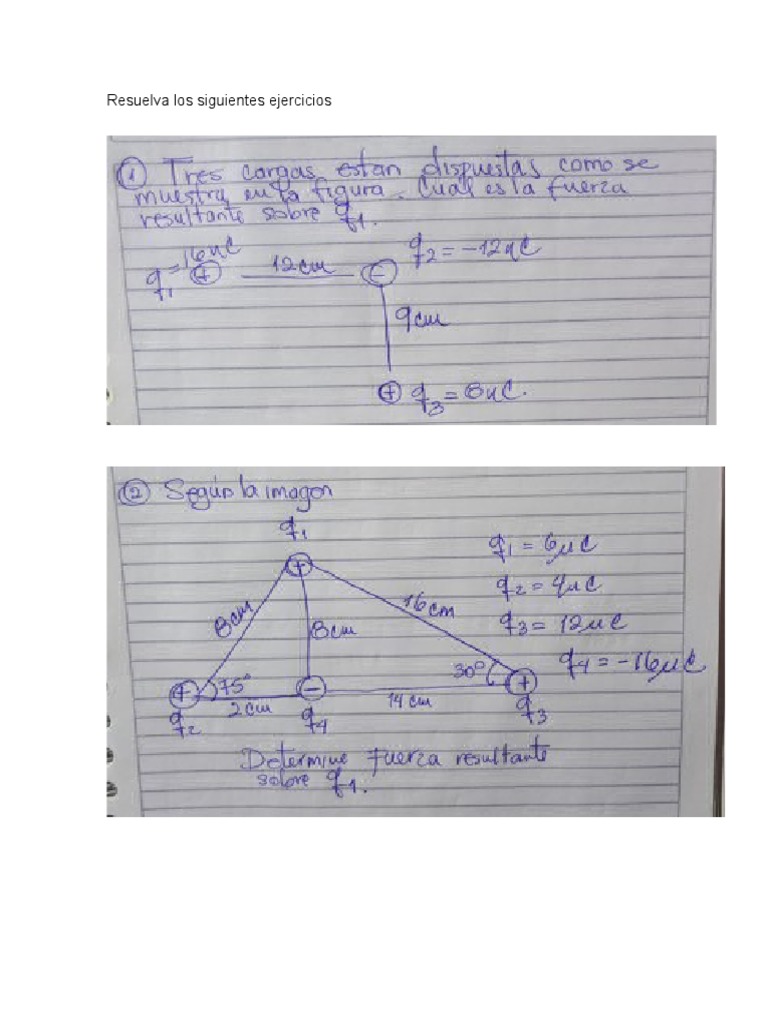 Resuelva los siguientes ejercicios
① Tres cargas estan dispuestas como se
muestra en la figura. Cual es la fuerza
resultante sobre q1.
q1 = 16uC + 12cm - q2 = -12uC
9cm
+ q3 = 8uC.
② Según la imagen
q1
+
q1 = 6μC
q2 = 4μC
q3 = 12μC
q4 = -16μC
8cm
8cm
16cm
+ 75° 2cm - 14cm 30° +
q2 q4 q3
Determine fuerza resultante
sobre q1.